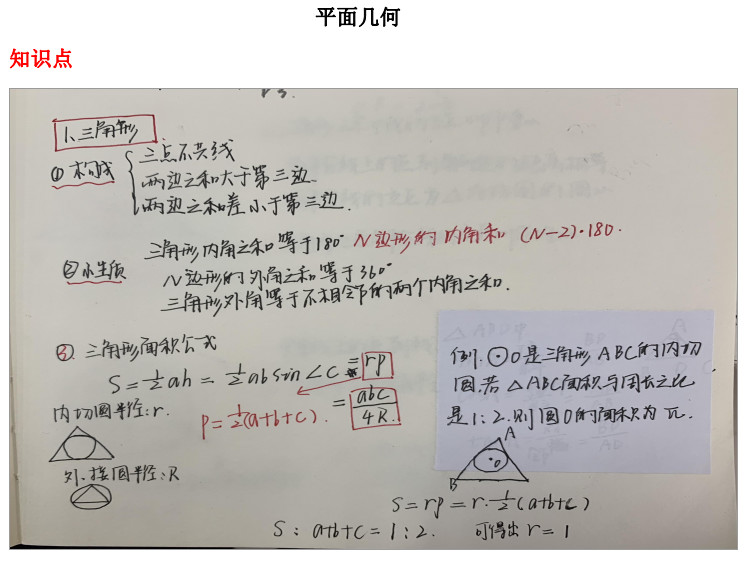 平面几何
知识点
1、三角形
① 构成
三点不共线
两边之和大于第三边
两边之和差小于第三边.
② 性质
三角形内角之和等于180° N边形的内角和 (N-2)·180.
N边形的外角之和等于360°
三角形外角等于不相邻的两个内角之和.
③. 三角形面积公式
S=½ah=½ab sin∠C=rp
p=½(a+b+c). =abc/4R.
内切圆半径:r.
外接圆半径:R
例1. ⊙O是三角形ABC的内切
圆.若△ABC面积与周长之比
是1:2.则圆O的面积为π.
A
O
B
S=rp=r·½(a+b+c)
S:a+b+c=1:2. 可得出r=1